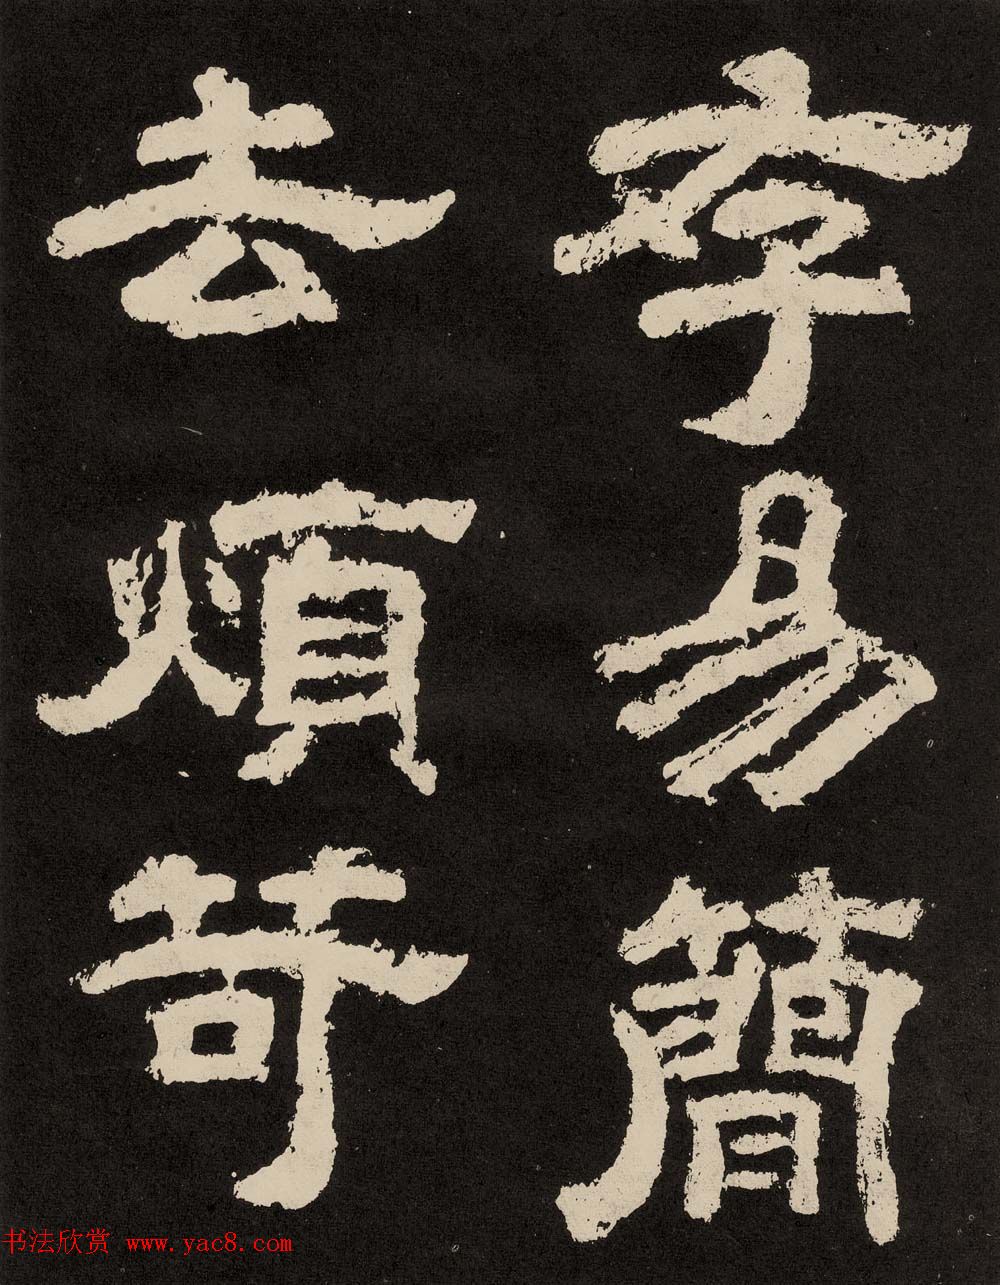 存易簡
去煩苛
书法欣赏 www.yac8.com